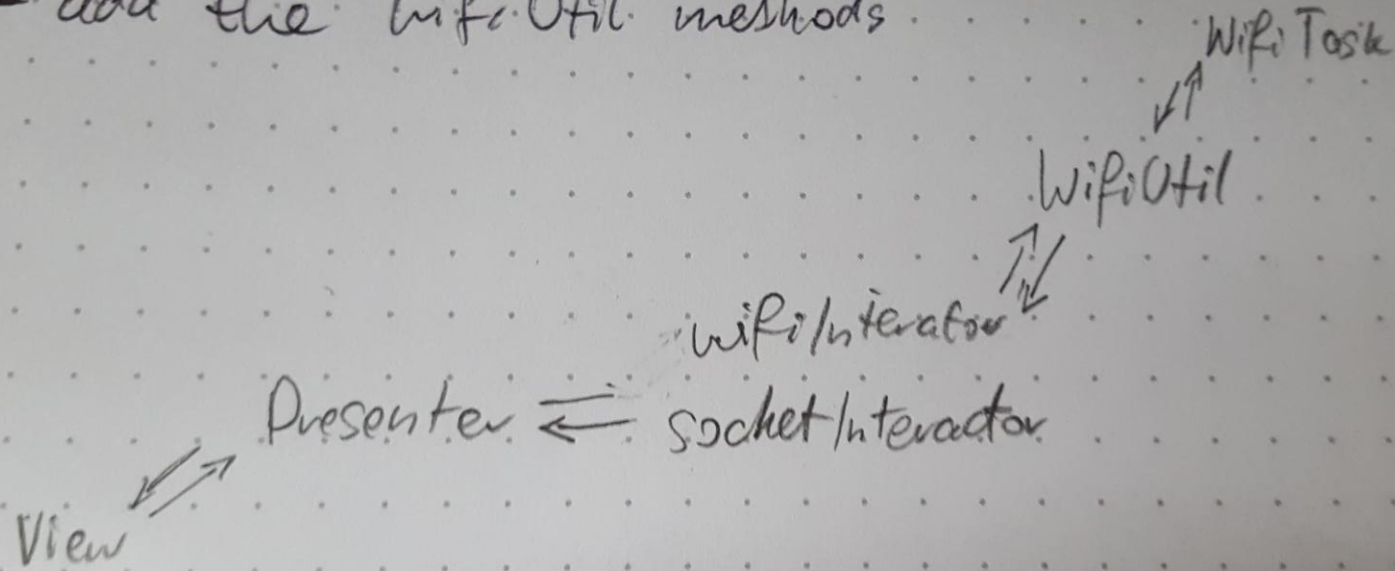 - add the WifiUtil methods
WifiTask
WifiUtil
wifiInterator
Presenter socketInteractor
View